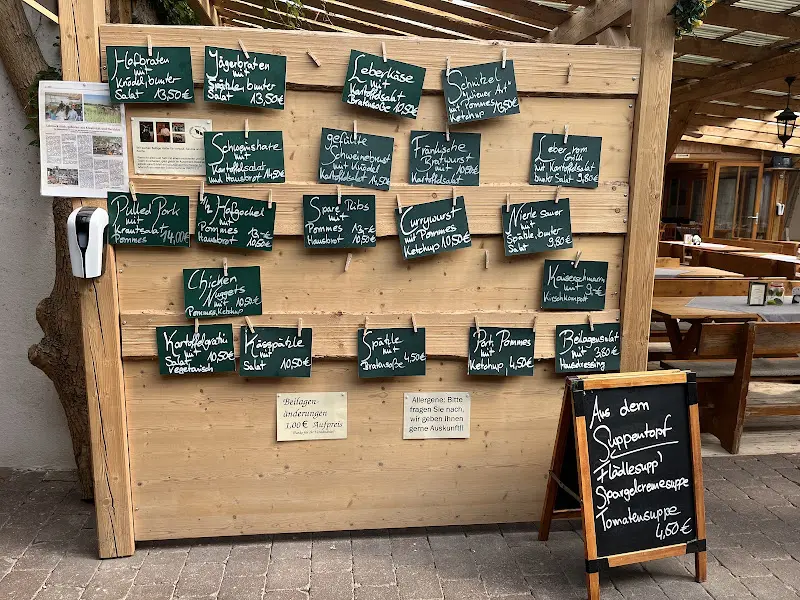 Hofbraten
mit
Knödel, bunter
Salat 13,50
Jägerbraten
mit
Spätzle, bunter
Salat 13,50€
Leberkäse
mit
Kartoffelsalat
Bratensoße 10,50
Schnitzel
mit Pommes
Ketchup 13,50
Schweinshaxe
mit
Kartoffelsalat
mit Hausbrot 14,50€
gefüllte
Schweinebrust
mit Knödel
Kartoffelsalat 14,50
Fränkische
Bratwurst
mit
Kartoffelsalat
mit
Kartoffelsalat
bunter Salat 9,80€
Pulled Pork
mit
Krautsalat
Pommes 14,00€
½ Hofgockel
mit
Pommes 13,-€
Hausbrot 10,50
Spare Ribs
mit
Pommes 13,-€
Hausbrot 10,50
Currywurst
mit Pommes
Ketchup 10,50€
Niere sauer
mit
Spätzle, bunter
Salat 9,80€
Chicken
Nuggets
mit 10,50€
Pommes, Ketchup
Kaiserschmarrn
mit 9,-€
Kirschkompott
Kartoffelgratin
mit
Salat 10,50€
Vegetarisch
Kässpätzle
mit
Salat 10,50€
Spätzle
mit 4,50€
Bratensoße
Port. Pommes
mit
Ketchup 4,50€
Beilagensalat
mit 3,80
Hausdressing €
Beilagen-
änderungen
1,00 € Aufpreis
Allergene: Bitte
fragen Sie nach,
wir geben ihnen
gerne Auskunft!!
Aus dem
Suppentopf
Flädlesupp'
Spargelcremesuppe
Tomatensuppe
4,60€